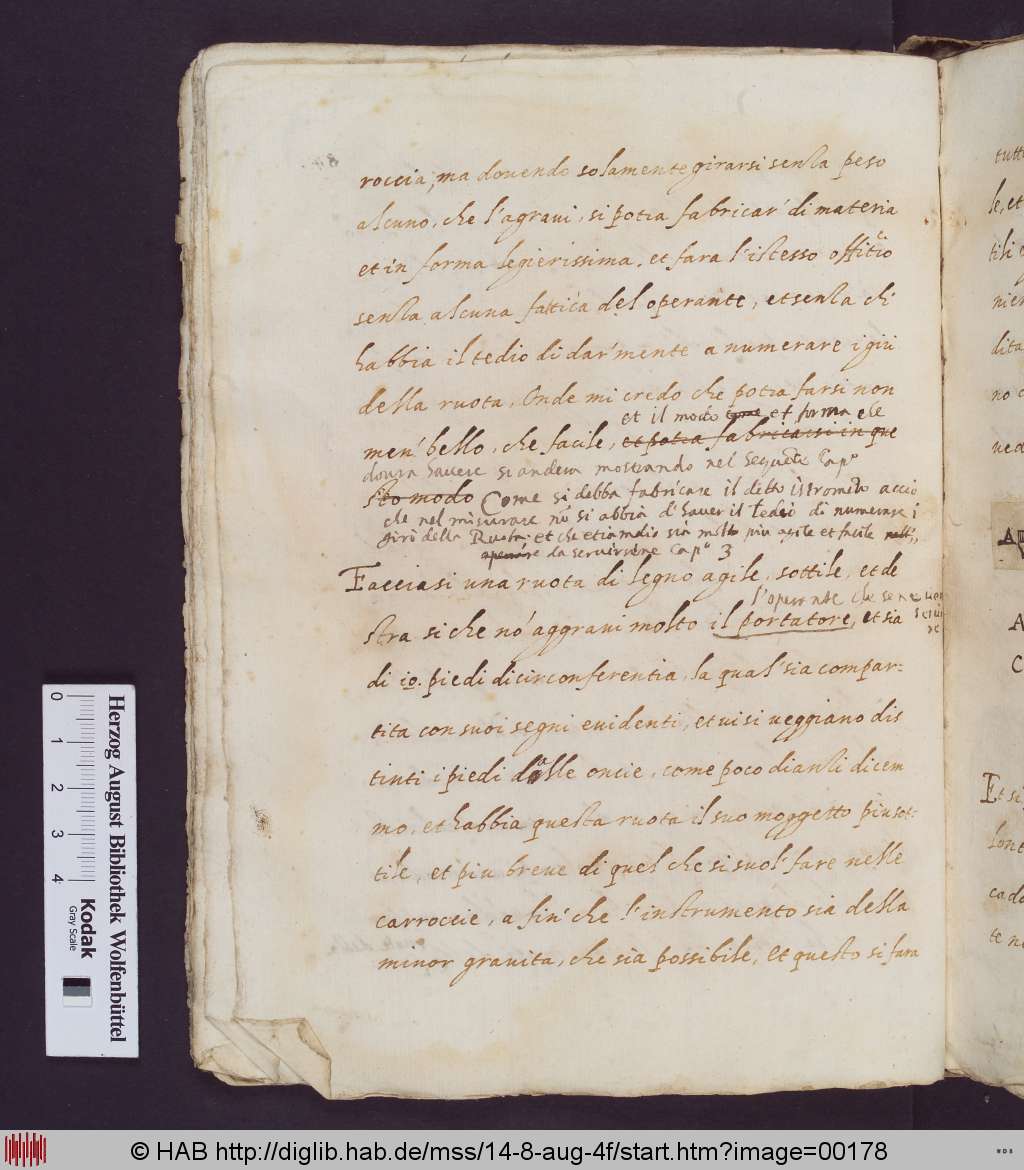 roccia, ma douendo solamente girarsi senza peso
alcuno, che l'agraui, si potra fabricar' di materia
et in forma legierissima, et fara l'istesso offitio
senza alcuna fattica del operante, et senza ch'
habbia il tedio di dar' mente a numerare i giri
della ruota. Onde mi credo che potra farsi non
et il modo come et forma che
men' bello, che facile, et potra fabricarsi in que
doura hauere si andera mostrando nel sequente Capº
sto modo Come si debba fabricare il detto istromento accio
che nel misurare nõ si abbia d'hauer il tedio di numerare i
giri della Ruota. et che etiamdio sia molto piu agile et facile nell'
operare da seruirsene Capº 3
Facciasi una ruota di legno agile, sottile, et de
l'operante che se ne uorra
stra si che nõ aggraui molto il portatore, et sia
serui
re
di 10. piedi di circonferentia, la qual' sia compar-
tita con suoi segni euidenti, et ui si ueggiano dis
tinti i piedi dalle oncie, come poco dianzi dicem
mo, et habbia questa ruota il suo moggetto piu sot-
tile, et piu breue di quel che si suol fare nelle
carroccie, a fin' che l'instrumento sia della
minor grauita, che sia possibile, Et questo si fara
tutt
le, et
tili
nien
dita
no
uea
A
C
Et si
lont
cado
te n
0 1 2 3 4
Kodak
Gray Scale
Herzog August Bibliothek Wolfenbüttel
© HAB http://diglib.hab.de/mss/14-8-aug-4f/start.htm?image=00178